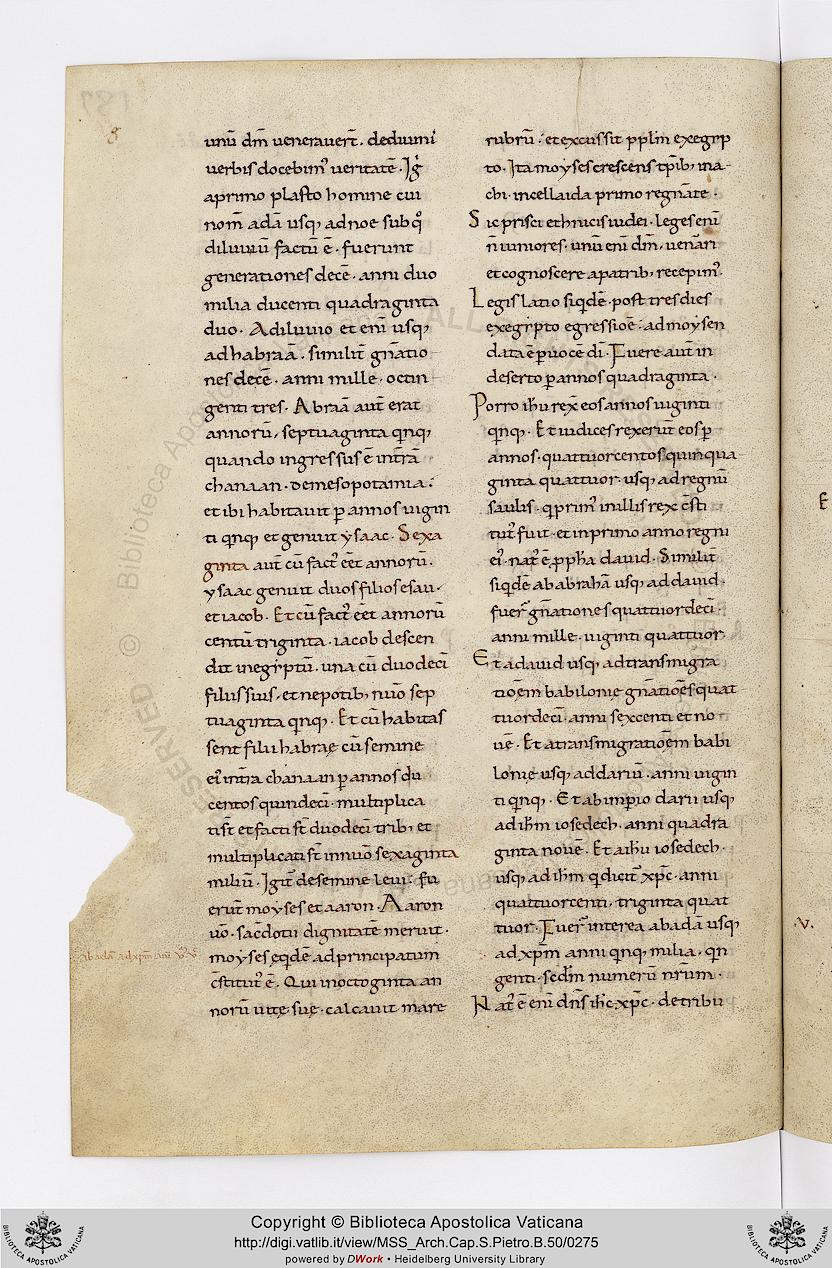 unũ dm̃ uenerauer̃t. deduumi
uerbis docebim᾽ ueritatẽ. Ig̃
aprimo plasto homine cui
nom̃ adã usq; adnoe subq̊
diluuiũ factũ ẽ. fuerunt
generationes decẽ. anni duo
milia ducenti quadraginta
duo. Adiluuio et eni᷆ usq;
adhabraã. similit̃ gñatio
nes decẽ. anni mille. octin
genti tres. Abraã aut̃ erat
annorũ, septuaginta qnq;
quando ingressus ẽ intrã
chanaan. demesopotamia.
et ibi habitauit p annos uigin
ti qnq; et genuit ysaac. Sexa
ginta aut̃ cũ fact᾽ eẽt annorũ.
ysaac genuit duos filios esau.
et iacob. Et cũ fact᾽ eẽt annorũ
centũ triginta. iacob descen
dit inegỹptũ. una cũ duodeci᷆
filiis suis. et nepotib; nũo sep
tuaginta qnq;. Et cũ habitas
sent filii habrę cũ semine
ei᾽ intrã chanaan p annos du
centos quindeci᷆. multiplica
ti st̃ et facti st̃ duodeci᷆ trib; et
multiplicati st̃ innũo sexaginta
miliũ. Igit̃ desemine leui. fu
erũt moyses et aaron. Aaron
uõ. sac̃dotii dignitatẽ meruit.
moyses eqdẽ adprincipatum
c̃stitut᾽ ẽ. Qui inoctoginta an
norũ uitę suę. calcauit mare
rubrũ. et excussit pplm̃ exegyp
to. Ita moyses crescens tp̃ib; ina
chi. incellaida primo regnãte.
Sic prisci ethnicis iudei. leges eni᷆
ñ iuniores. unũ eni᷆ dm̃, uenãri
et cognoscere apatrib; recepim᾽.
Legislatio siqdẽ. post tres dies
exegypto egressioẽ. ad moysen
data ẽ p uocẽ di᷆. Fuere aut̃ in
deserto p annos quadraginta.
Porro ihũ rex̃ eos annos uiginti
qnq;. Et iudices rexerũt eos p
annos. quattuorcentos quinqua
ginta quattuor. usq; adregnũ
saulis. q prim᾽ inillis rex c̃sti
tut᾽ fuit. et inprimo anno regni
ei᾽. nat᾽ ẽ ppha dauid. Similit̃
siqdẽ ab abrahã usq; ad dauid.
fuer̃ gñationes quattuordeci᷆.
anni mille. uiginti quattuor.
Et adauid usq; adtransmigra
tioẽm babilonie gñatioẽs quat
tuordeci᷆. anni sexcenti et no
uẽ. Et atransmigratioẽm babi
lonie usq; ad dariũ. anni uigin
ti qnq;. Et ab imp̃io darii usq;
ad ihm̃ iosedech. anni quadra
ginta nouẽ. Et aihũ iosedech.
usq; ad ihm̃ q dicit᾽ xp̃c. anni
quattuorcenti, triginta quat
tuor. Fuer̃ interea abadã usq;
ad xp̃m anni qnq; milia, qn
genti. scd̃m numerũ nr̃um.
Nat᾽ ẽ eni᷆ dñs ihc̃ xp̃c. detribu
.V.
E
Copyright © Biblioteca Apostolica Vaticana
http://digi.vatlib.it/view/MSS_Arch.Cap.S.Pietro.B.50/0275
powered by DWork • Heidelberg University Library